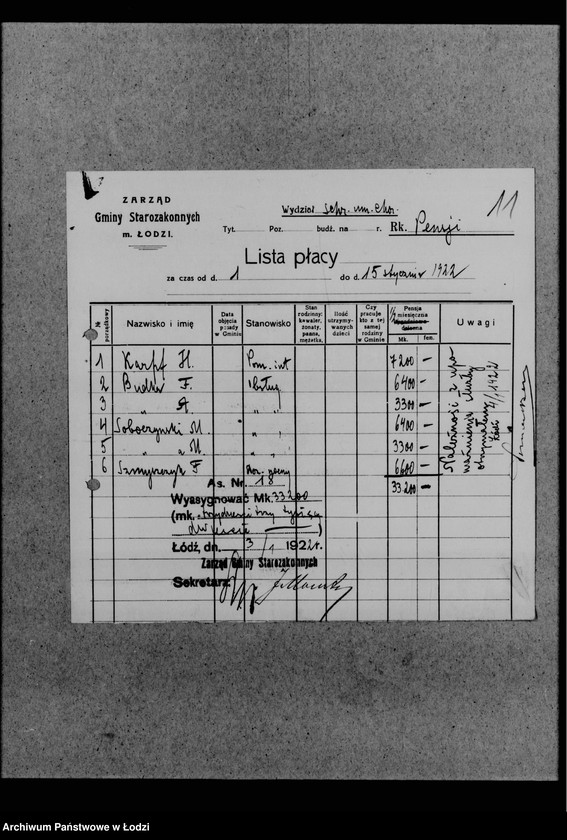 11
ZARZĄD
Gminy Starozakonnych
m. ŁODZI.
Wydział Schr. um. chor.
Tyt. Poz. budż. na r. Rk. Pensji
Lista płacy
za czas od d. 1 do d. 15 stycznia 1922
№ porządkowy
Nazwisko i imię
Data objęcia posady w Gminie
Stanowisko
Stan rodzinny: kawaler, żonaty, panna, mężatka,
Ilość utrzymywanych dzieci
Czy pracuje kto z tej samej rodziny w Gminie
½ Pensja miesięczna
Mk. fen.
Uwagi
1 Karpf H. Pom. int 7200 —
2 F. 6400 —
3 " A. " " 3300 —
4 Soboczyński M " " 6400 —
5 " " M. " " 3300 —
6 F 6600 —
33.200 —
Należność z upoważnienia służby otrzymałem
Łódź 4/1 1922
As. Nr. 18
Wyasygnować Mk. 33200
(mk. trzydzieści trzy tysiące
dwieście)
Łódź, dn. 3/1 1922r.
Zarząd Gminy Starozakonnych
Sekretarz:
Archiwum Państwowe w Łodzi